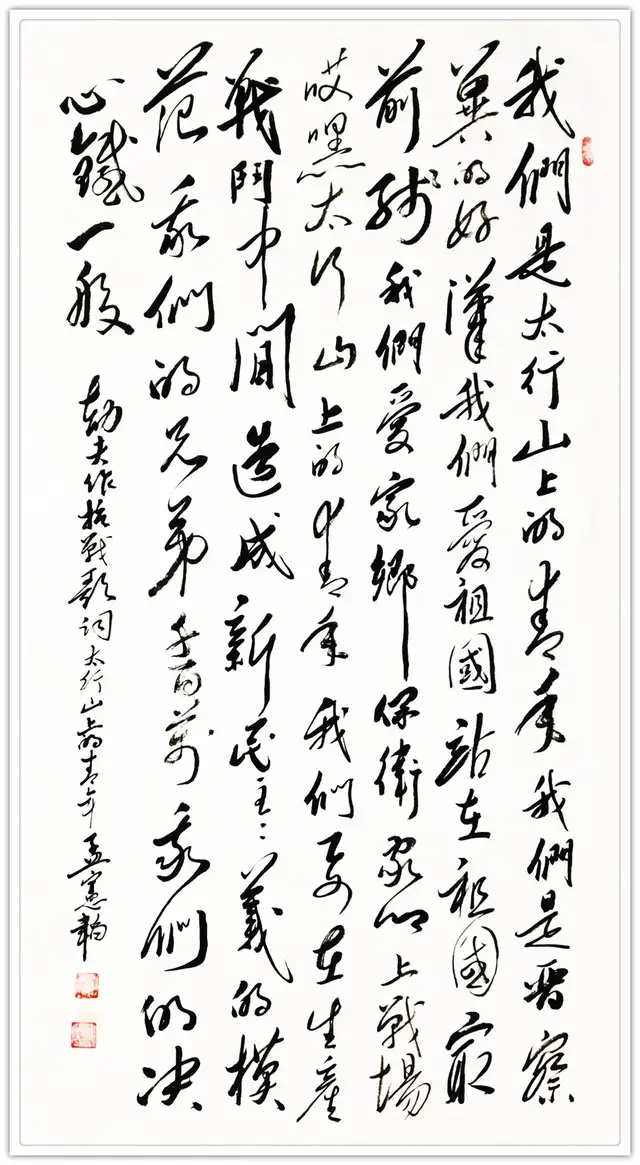 我們是太行山上的青年我們是晋察
冀的好漢我們愛祖國站在祖國最
前綫我們愛家鄉保衛家鄉上戰場
哎嘿太行山上的青年我們要在生產
戰鬥中間造成新民主々義的模
范我們的兄弟千百萬我們的决
心鐵一般
劫夫作抗戰歌詞太行山上的青年孟憲